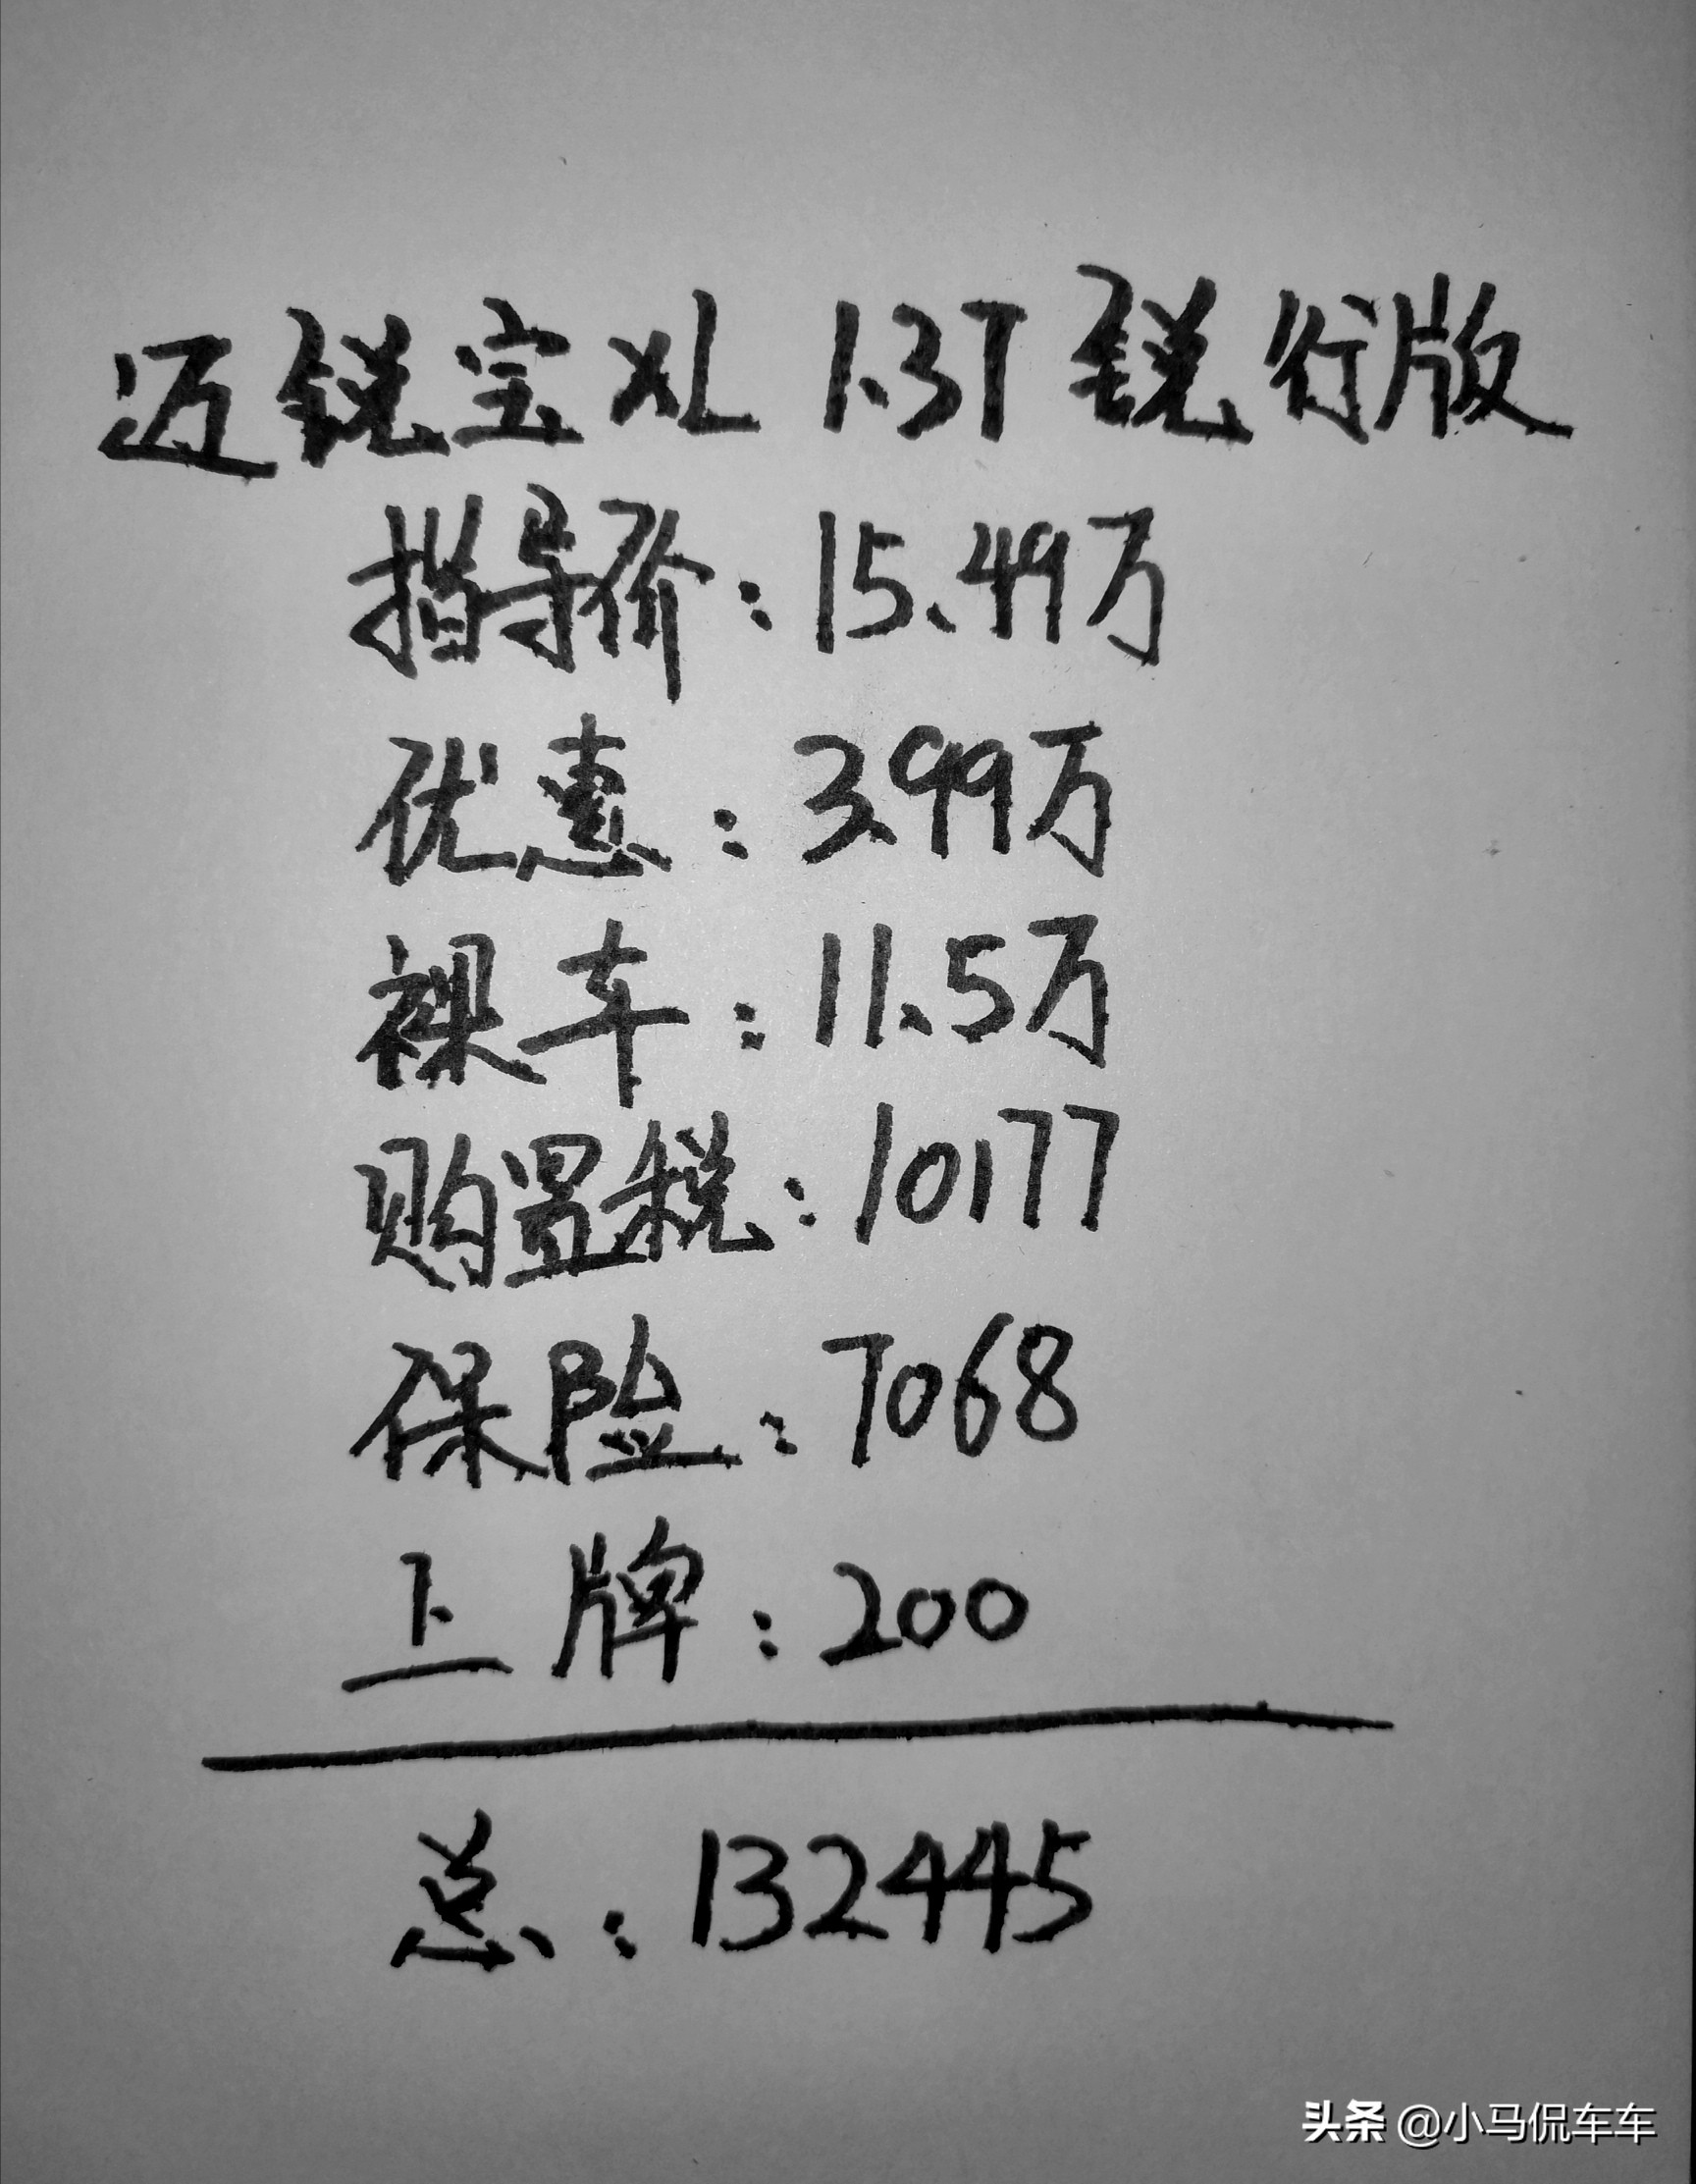 迈锐宝XL 1.3T 锐行版
指导价：15.49万
优惠：3.99万
裸车：11.5万
购置税：10177
保险：7068
上牌：200
总：132445
头条 @小马侃车车